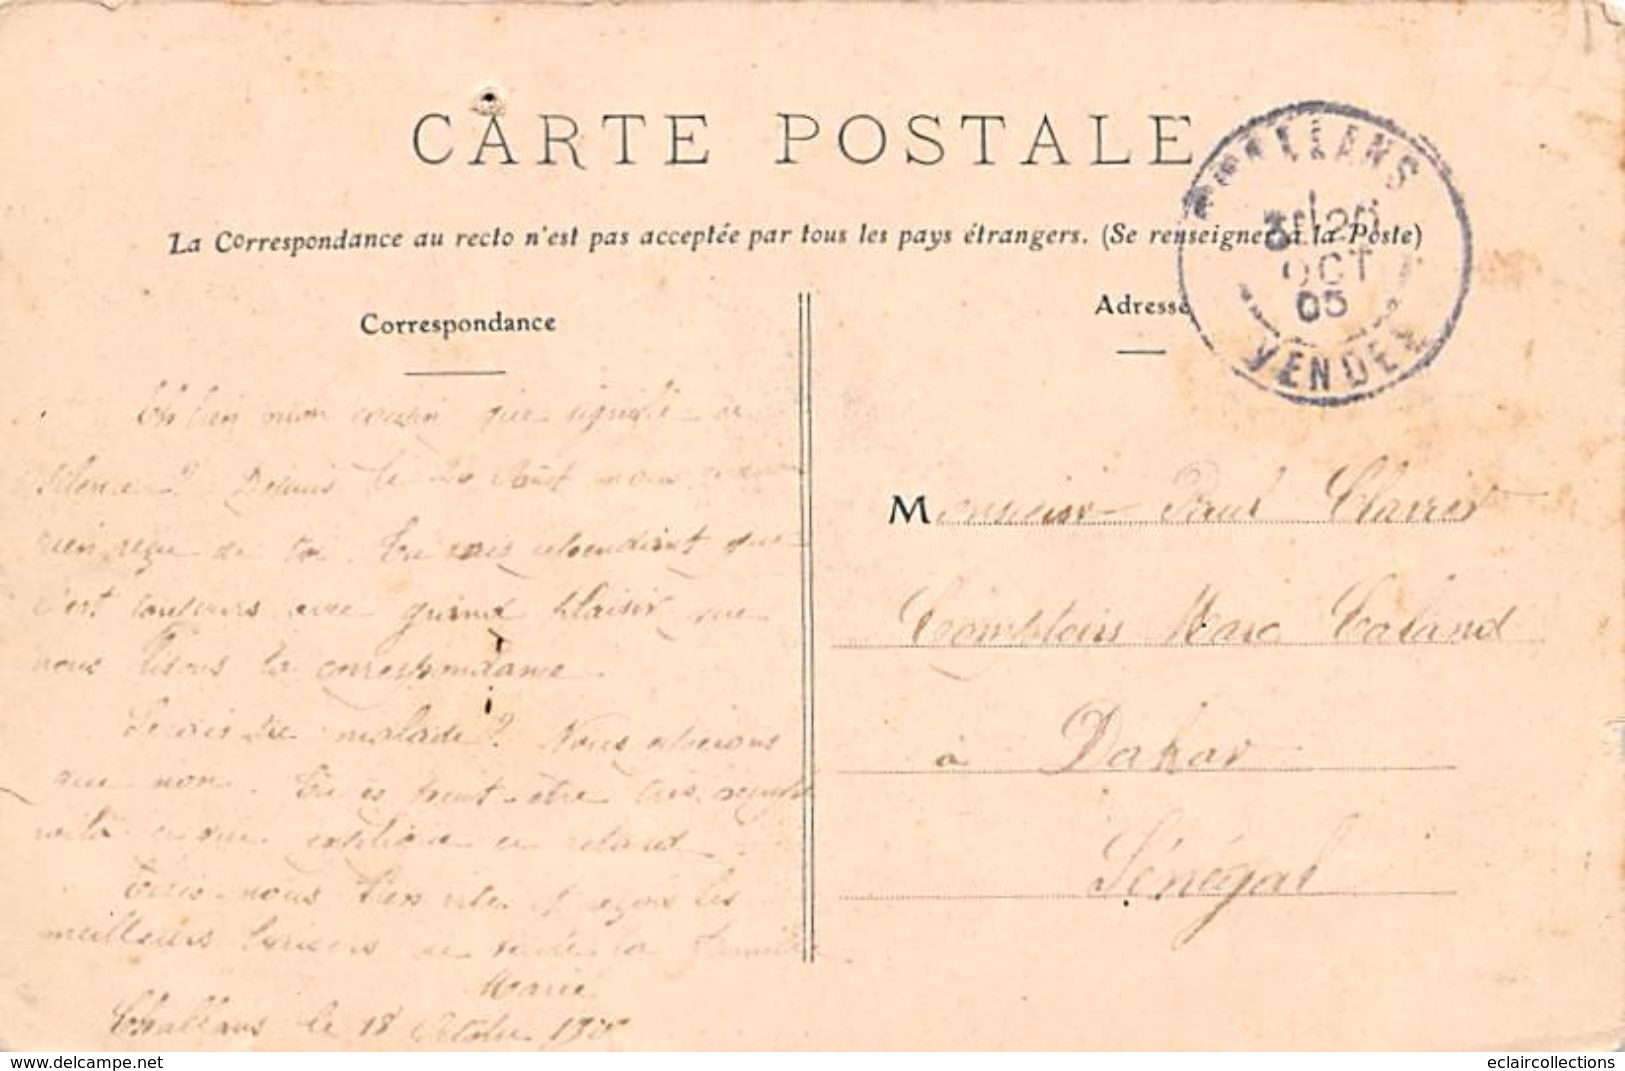 CARTE POSTALE
La Correspondance au recto n'est pas acceptée par tous les pays étrangers. (Se renseigner à la Poste)
CHALLANS
20
OCT
05
VENDEE
Correspondance
Eh bien mon cousin que signifie ce
silence? Depuis le 20 Août nous n'avons
rien reçu de toi. Tu sais cependant que
c'est toujours avec grand plaisir que
nous lisons ta correspondance.
Serais-tu malade? Nous espérons
que non. Tu es peut-être très occupé
voilà ce qui explique ce retard.
Écris-nous bien vite et reçois les
meilleurs baisers de toute la famille
Marie
Challans le 18 Octobre 1905
Adresse
Monsieur Paul Clavier
Comptoirs Marc Caland
à Dakar
Sénégal
eclaircollections